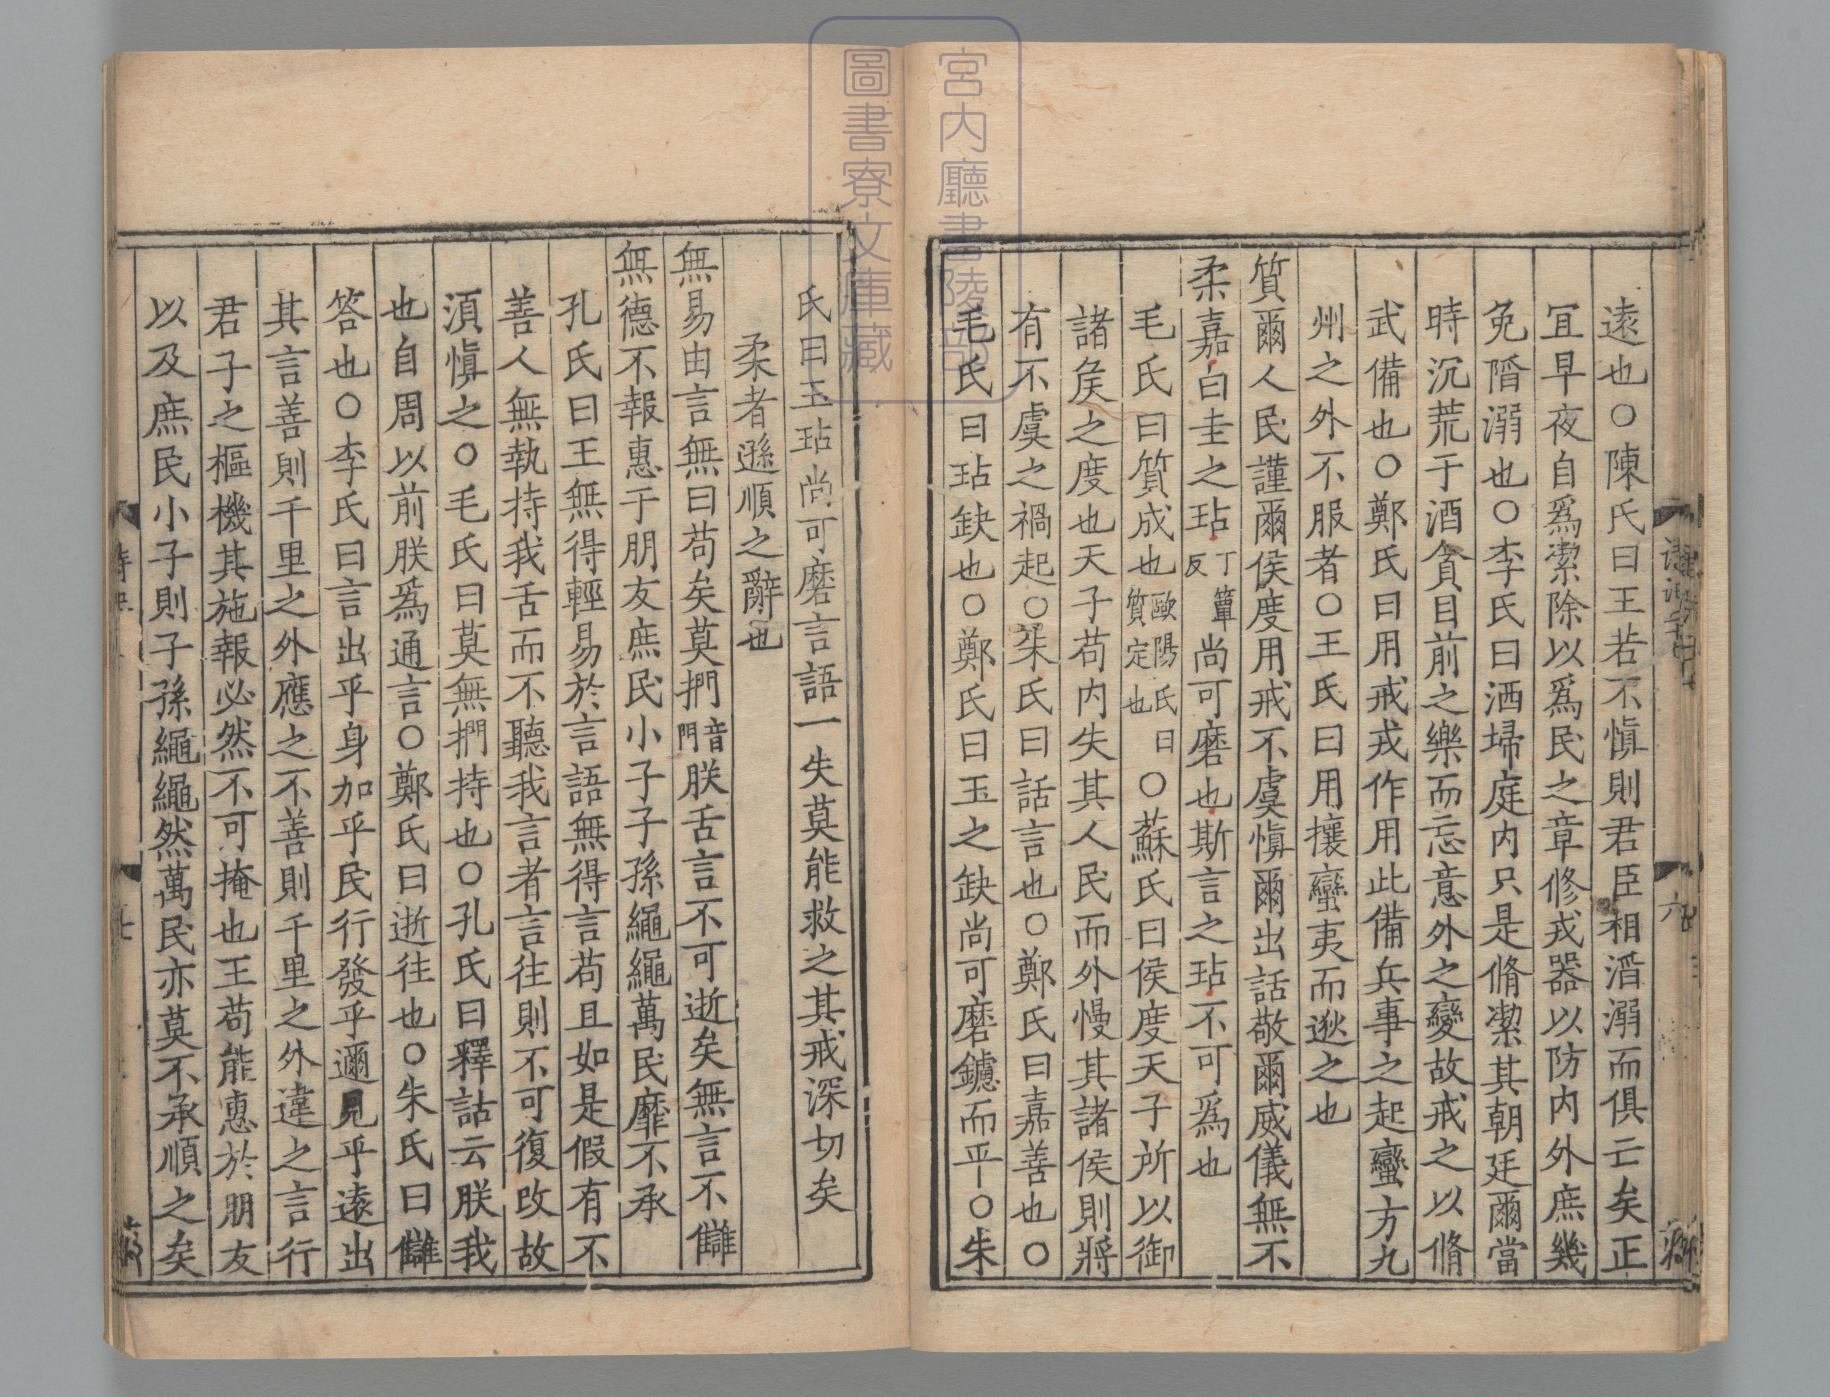 遠也○陳氏曰王若不慎則君臣相滔溺而俱亡矣正
宜早夜自爲潔除以爲民之章修戎器以防内外庶幾
免㴞溺也○李氏曰洒埽庭内只是脩潔其朝廷爾當
時沉荒于酒貪目前之樂而忘意外之變故戒之以脩
武備也○鄭氏曰用戒戎作用此備兵事之起蠻方九
州之外不服者○王氏曰用攘蠻夷而逖之也
質爾人民謹爾侯度用戒不虞慎爾出話敬爾威儀無不
柔嘉白圭之玷丁簟反尚可磨也斯言之玷不可爲也
毛氏曰質成也歐陽氏曰質定也○蘇氏曰侯度天子所以御
諸侯之度也天子苟内失其人民而外慢其諸侯則將
有不虞之禍起○朱氏曰話言也○鄭氏曰嘉善也○
毛氏曰玷缺也○鄭氏曰玉之缺尚可磨鑢而平○朱
氏曰玉玷尚可磨言語一失莫能救之其戒深切矣
柔者遜順之辭也
無易由言無曰苟矣莫捫音門朕舌言不可逝矣無言不讎
無德不報惠于朋友庶民小子子孫繩繩萬民靡不承
孔氏曰王無得輕易於言語無得言苟且如是假有不
善人無執持我舌而不聽我言者言往則不可復改故
湏慎之○毛氏曰莫無捫持也○孔氏曰釋詁云朕我
也自周以前朕爲通言○鄭氏曰逝往也○朱氏曰讎
答也○李氏曰言出乎身加乎民行發乎邇見乎遠出
其言善則千里之外應之不善則千里之外違之言行
君子之樞機其施報必然不可掩也王苟能惠於朋友
以及庶民小子則子孫繩繩然萬民亦莫不承順之矣
六
七
宮内廳書陵部
圖書寮文庫藏